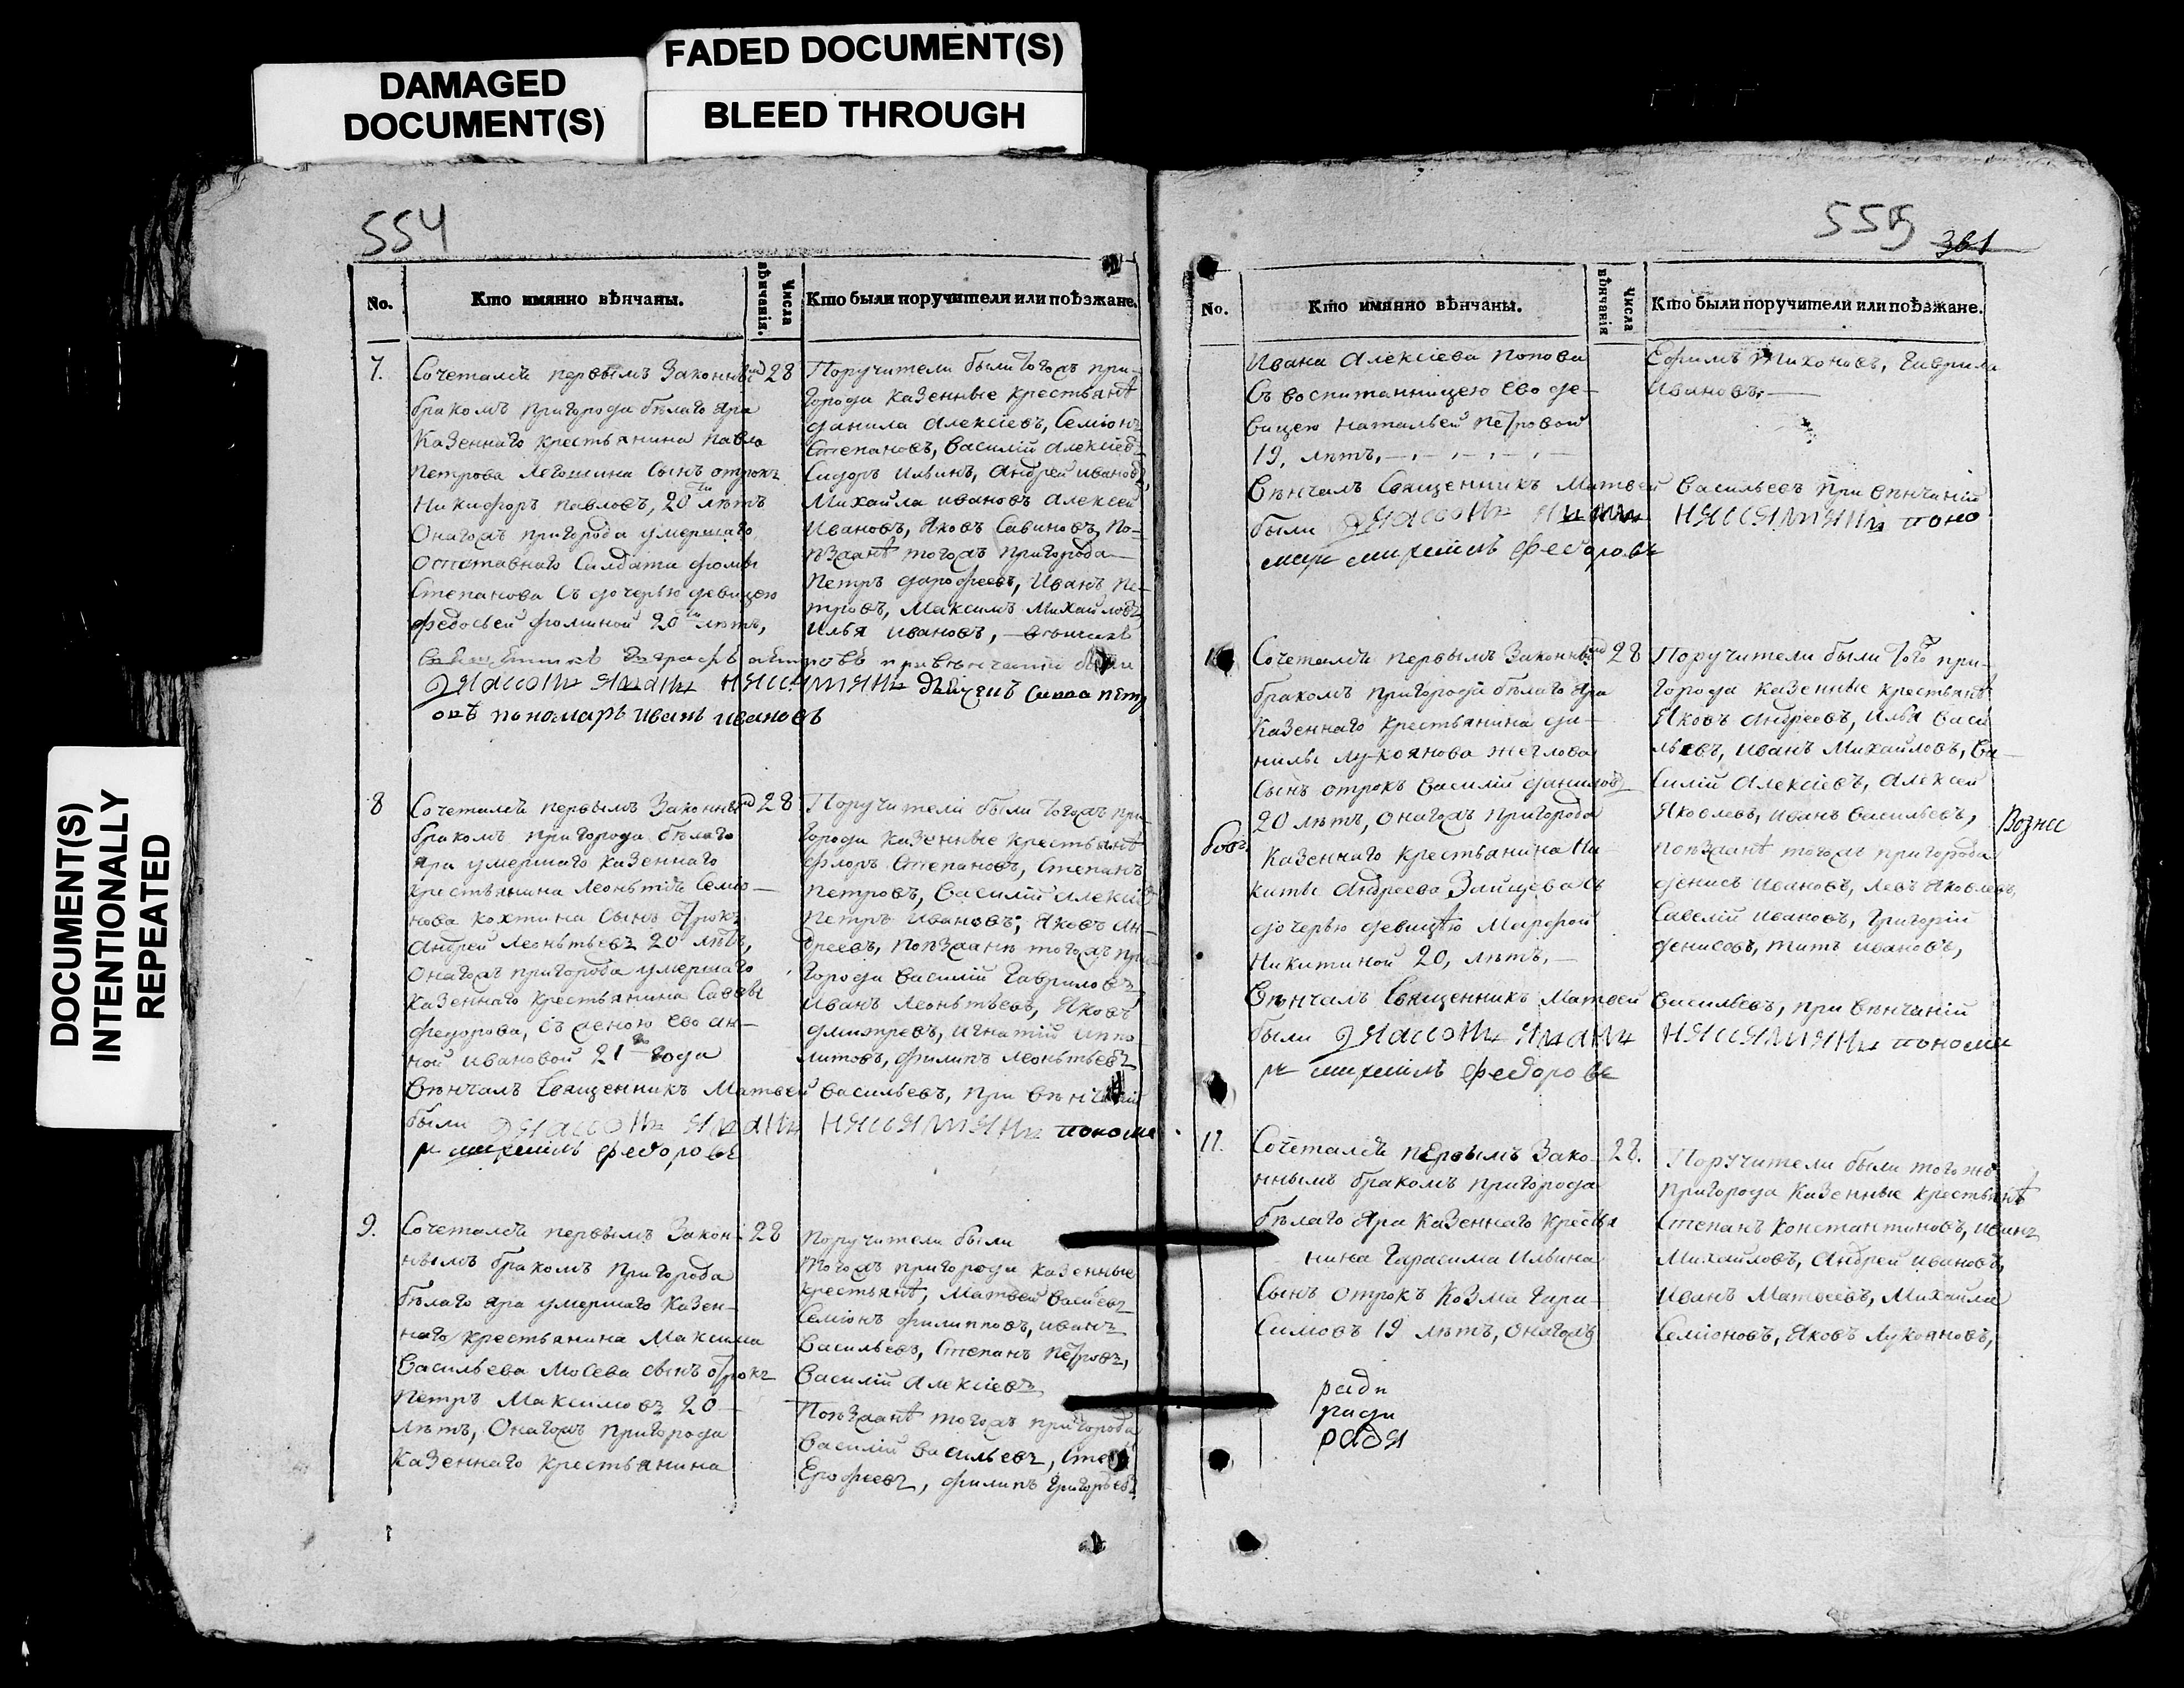 DAMAGED
DOCUMENT(S)
FADED DOCUMENT(S)
BLEED THROUGH
DOCUMENT(S)
INTENTIONALLY
REPEATED
554
No.
Кто имянно вѣнчаны.
Числа
вѣнчанія.
Кто были поручители или поѣзжане.
7.
Сочетался первымъ Законны
бракомъ пригорода бѣлаго Яра
Казеннаго крестьянина Павла
Петрова Легошина Сынъ отрокъ
Никифоръ Павловъ, 20ти лѣтъ
Онагожъ пригорода умершаго
отставнаго Салдата Фомы
Степанова Съ дочерью девицею
Федосьей Фоминой 20ти лѣтъ,
28
Поручители были тогожъ при-
города Казенные крестьянѣ
Данила Алексіевъ, Семіонъ
Степановъ, Василій Алексіевъ
Сидоръ Ильинъ, Андрей Ивановъ,
Михайла Ивановъ Алексей
Ивановъ, Яковъ Савиновъ, По-
ѣзжанѣ тогожъ пригорода
Петръ Дарофеевъ, Иванъ Пе-
тровъ, Максимъ Михайловъ
Илья Ивановъ,
при вѣнчаніи были
пономаръ Иванъ Ивановъ
8
Сочетался первымъ Законны
бракомъ пригорода бѣлаго
Яра умершаго Казеннаго
крестьянина Леонътія Семіо-
нова Кохтина Сынъ отрокъ
Андрей Леонътьевъ 20 лѣтъ,
Онагожъ пригорода умершаго
Казеннаго крестьянина Саввы
Федорова, съ женою ево Ан-
ной Ивановой 21 года
28
Поручители были тогожъ при
города Казенные крестьянѣ
Флоръ Степановъ, Степанъ
Петровъ, Василій Алексіевъ
Петръ Ивановъ, Яковъ Ан-
дреевъ, Поѣзжанѣ тогожъ при
города Василій Гавриловъ
Иванъ Леонътьевъ, Яковъ
Дмитревъ, Игнатій Иппо
литовъ, Филипъ Леонътьевъ
Вѣнчалъ Священникъ Матвей Васильевъ, при вѣнчаніи
были понома
р Михаилъ Федоровъ
9.
Сочетался первымъ Закон-
нымъ бракомъ Пригорода
бѣлаго Яра умершаго Казен-
наго крестьянина Максима
Васильева Мосева сынъ отрокъ
Петръ Максимовъ 20
лѣтъ, Онагожъ пригорода
Казеннаго крестьянина
28
Поручители были
тогожъ пригорода Казенные
крестьянѣ, Матвей Васіевъ
Семіонъ Филипповъ, Иванъ
Васильевъ, Степанъ Петровъ,
Василій Алексіевъ
Поѣзжанѣ тогожъ пригорода
Василій Васильевъ,
Ерофеевъ, Филипъ Григорьевъ
555
361
No.
Кто имянно вѣнчаны.
Числа
вѣнчанія
Кто были поручители или поѣзжане.
Ивана Алексіева Попова
Съ воспитанницею ево де-
вицею Натальей Петровой
19, лѣтъ,
Ефимъ Тихоновъ, Гаврила
Ивановъ,
Вѣнчалъ Священникъ Матвей Васильевъ При вѣнчаніи
были поно
мар Михаилъ Федоровъ
Сочетался первымъ Законны
бракомъ пригорода бѣлаго Яра
Казеннаго крестьянина Да-
нилы Лукоянова Жеглова
Сынъ отрокъ Василій Даниловъ
20 лѣтъ, Онагожъ Пригорода
Казеннаго крестьянина Ни-
киты Андреева Зайцева съ
дочерью девицѣю Марфой
Никитиной 20, лѣтъ,
28
Поручители были того при-
города Казенные крестьянѣ
Яковъ Андреевъ, Илья Васи
льевъ, Иванъ Михайловъ, Ва-
силій Алексіевъ, Алексей
Яковлевъ, Иванъ Васильевъ,
поѣзжанѣ тогожъ пригорода
Денисъ Ивановъ, Левъ Яковлевъ,
Савелій Ивановъ, Григорій
Денисовъ, Титъ Ивановъ,
Вознес
Вѣнчалъ Священникъ Матвей Васильевъ, при вѣнчаніи
были понома
р Михаилъ Федоровъ
11.
Сочетался первымъ Зако-
ннымъ бракомъ пригорода
бѣлаго Яра Казеннаго крестья
нина Гарасима Ильина
Сынъ отрокъ Козма Гара-
симовъ 19 лѣтъ, Онагожъ
28.
Поручители были того же
пригорода Казенные крестьянѣ
Степанъ Константиновъ, Иванъ
Михайловъ, Андрей Ивановъ,
Иванъ Матвеевъ, Михайла
Семіоновъ, Яковъ Лукояновъ,
ради
ради
радя